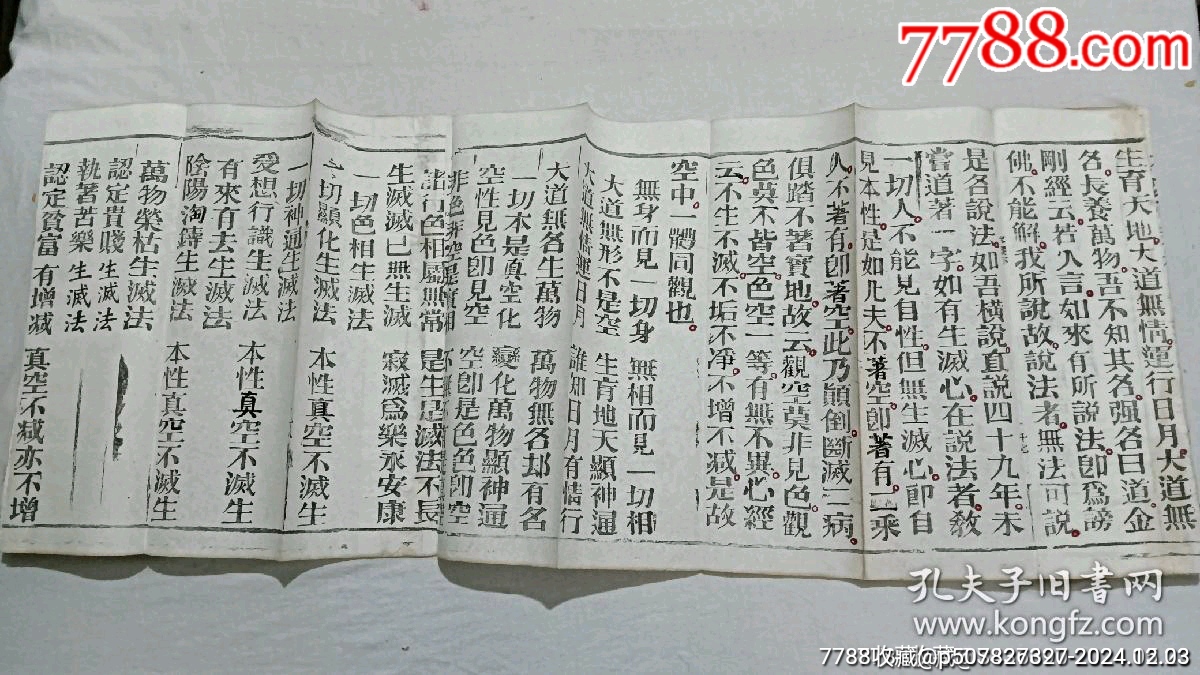 7788.com
生育天地大道無情運行日月大道無
名長養萬物吾不知其名强名曰道金
剛經云若人言如來有所說法卽爲謗
佛不能解我所說故說法者無法可說
是名說法如吾橫說直說四十九年未
當道著一字如有生滅心在說法者教
一切人不能見自性但無生滅心卽自
見本性是如凡夫不著空卽著有二乘
人不著有卽著空此乃顚倒斷滅二病
俱踏不著實地故云觀空莫非見色觀
色莫不皆空色空一等有無不異心經
云不生不滅不垢不淨不增不減是故
空中一體同觀也
無身而見一切身 無相而見一切相
大道無形不是空 生育地天顯神通
大道無情運日月 誰知日月有情行
大道無名生萬物 萬物無名却有名
一切本是眞空化 變化萬物顯神通
空性見色卽見空 空卽是色色卽空
非色非空是實相
諸行色相屬無常 是生是滅法不長
生滅滅已無生滅 寂滅爲樂永安康
一切色相生滅法
一切顯化生滅法 本性真空不滅生
一切神通生滅法
受想行識生滅法 本性真空不滅生
有來有去生滅法
陰陽淘鑄生滅法 本性真空不滅生
萬物榮枯生滅法
認定貴賤生滅法
執著苦樂生滅法
認定貧富有增減 真空不減亦不增
孔夫子旧书网
www.kongfz.com
7788收藏@p507827327-2024.12.03